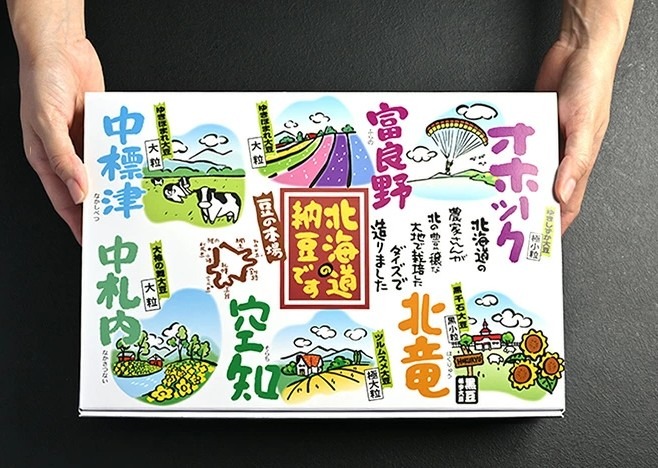 オホーツク
ゆきしずか大豆
極小粒
富良野
ふらの
ゆきほまれ大豆
大粒
中標津
なかしべつ
ゆきほまれ大豆
大粒
北海道の
農家さんが
北の豊穣な
大地で栽培した
ダイズで
造りました
北海道の
納豆です
豆の本場
北竜
ほくりゅう
黒千石大豆
黒小粒
HOKURYU
黒豆
空知
そらち
ツルムスメ大豆
極大粒
中札内
なかさつない
大袖の舞大豆
大粒